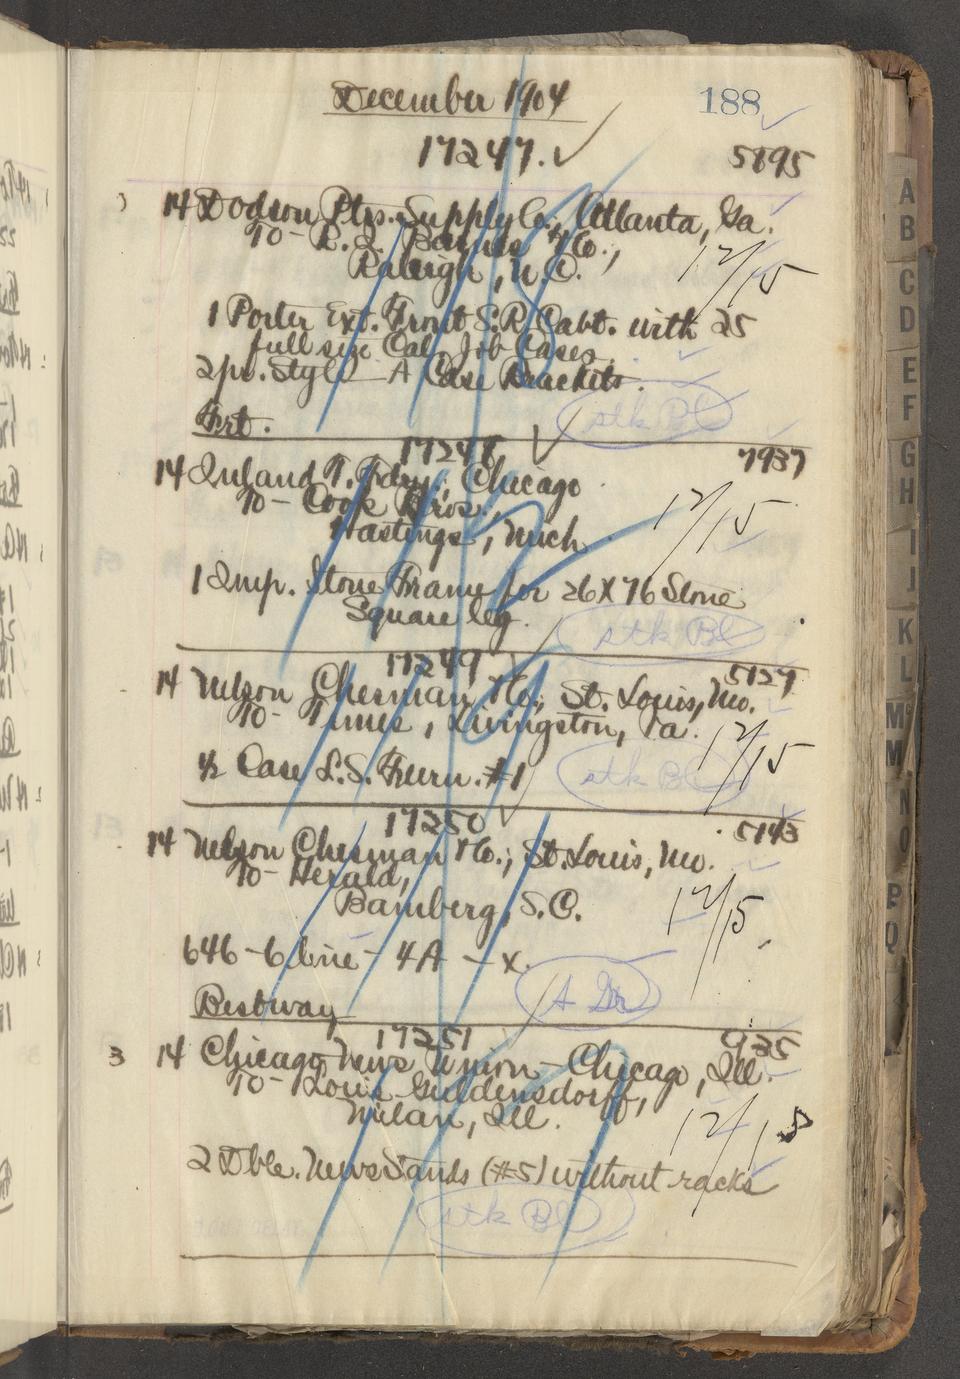 December 1904
188
17247.
5895
14 Dodson Ptrs. Supply Co., Atlanta, Ga.
To - R. L. Co.,
Raleigh, N.C.
12/15
1 Porter Ext. Front S.R. Cabt. with 25
full size Cal. Job Cases
2 pr. Style - A Case Brackets.
stk Bl
Frt.
17248
7937
14 Inland T. Fdry., Chicago
To - Cook Bros.,
Hastings, Mich.
12/15
1 Imp. Stone Frame for 26 X 76 Stone
Square leg.
stk Bl
17249
5127
14 Nelson Chesman & Co., St. Louis, Mo.
To - Times, Livingston, Va.
12/15
1/2 Case L.S. Furn. #1
stk Bl
17250
5143
14 Nelson Chesman & Co., St. Louis, Mo.
To - Herald,
Bamberg, S.C.
12/15
646 - 6 line - 4A - x.
Bestway
17251
935
3 14 Chicago News Union - Chicago, Ill.
To - Louis Guldensdorff,
Milan, Ill.
12/18
2 Dble. News Stands (#5) without racks
stk Bl
A
B
C
D
E
F
G
H
I
J
K
L
M
M
N
O
P
Q